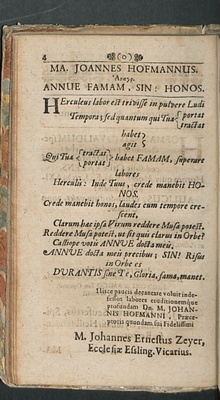 4 (o)
MA. JOANNES HOFMANNUS.
ANNUE FAMAM, SIN! HONOS.
Herculeus labor est trivisse in pulvere Ludi
Tempora; sed quantum qui Tua { portat
tractat
habet }
agit }
Qui Tua { tractat
portat } habet FAMAM, superare
labores
Herculis: Inde Tuus, crede manebit HO-
NOS.
Crede manebit honos, laudes cum tempore cre-
scent,
Clarum hac ipsa Virum reddere Musa potest.
Reddere Musa potest, ut sit quis clarus in Orbe?
Calliope votis ANNUE docta meis.
ANNUE docta meis precibus; SIN! Risus
in Orbe es
DURANTIS sine Te, Gloria, fama, manet.
Hisce paucis decantare voluit inde-
fessos labores eruditionemque
profundam Dn. M. JOHAN-
NIS HOFMANNI, Præce-
ptoris quondam sui Fidelissimi
M. Johannes Ernestus Zeyer,
Ecclesiæ Esling. Vicarius.